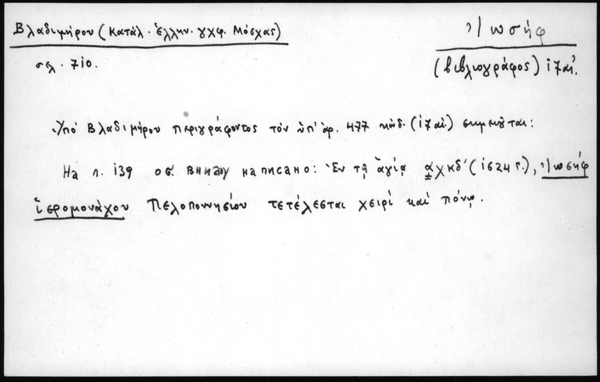 Βλαδιμήρου (Κατάλ. ἑλλην. χγφ. Μόσχας)
σελ. 710.
Ἰωσήφ
(βιβλιογράφος) ιζ' αἰ.
Ὑπὸ Βλαδιμήρου περιγράφοντος τὸν ὑπ' ἀρ. 477 κώδ. (ιζ' αἰ) σημειοῦται:
На л. 139 об. внизу написано: Ἐν τῇ ἁγίᾳ αχκδ' (1624 г.), Ἰωσὴφ
ἱερομονάχου Πελοποννησίου τετέλεσται χειρὶ καὶ πόνῳ.